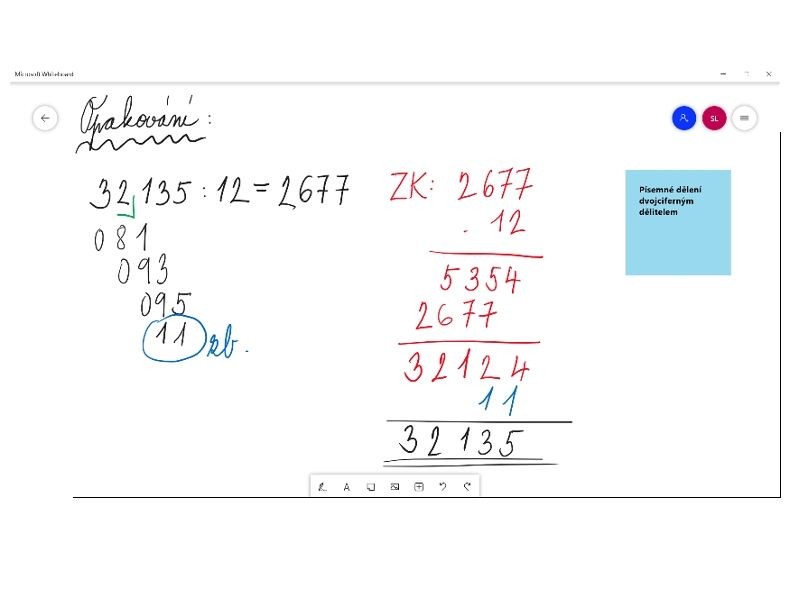 Microsoft Whiteboard
Opakování:
SL
32135 : 12 = 2677
081
093
095
11 zb.
ZK: 2677
. 12
5354
2677
32124
11
32135
Písemné dělení
dvojciferným
dělitelem
A